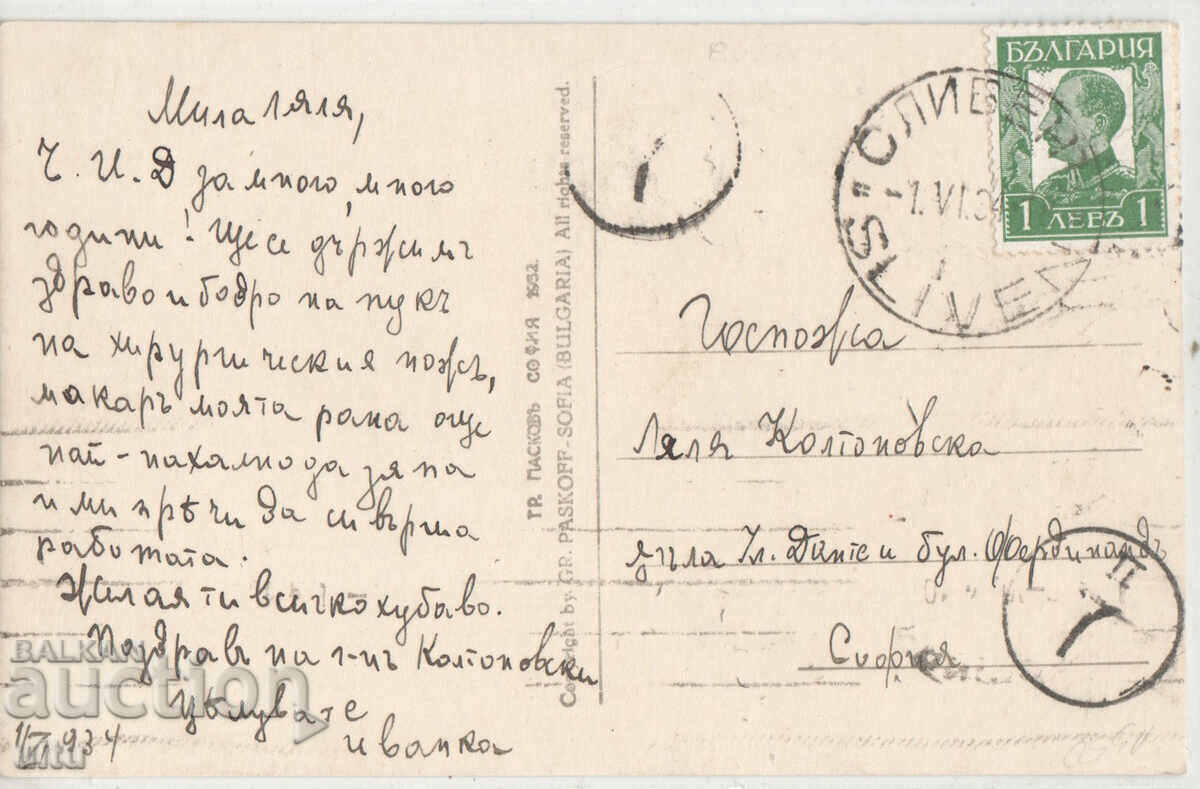 Мила Ляля,
Ч. И. Д за много, много
години! Ще се държимъ
здраво и бодро на пукъ
на хирургическия ножъ,
макаръ моята рана още
най-нахално да зяпа
и ми прѣчи да си върша
работата.
Желая ти всичко хубаво.
Поздравъ на г-нъ Колтоновски
Цѣлувате
Иванка
934
ТР. ПАСКОВЪ СОФИЯ 1932.
Copyright by GR. PASKOFF-SOFIA (BULGARIA) All rights reserved.
БЪЛГАРИЯ
1 ЛЕВЪ 1
СЛИВЕНЪ
1.VI.34
SLIVEN
Госпожа
Ляля Колтоновска
ѫгъла Ул.Данте и бул. Фердинандъ
София
Т
П
BALKAN
auction